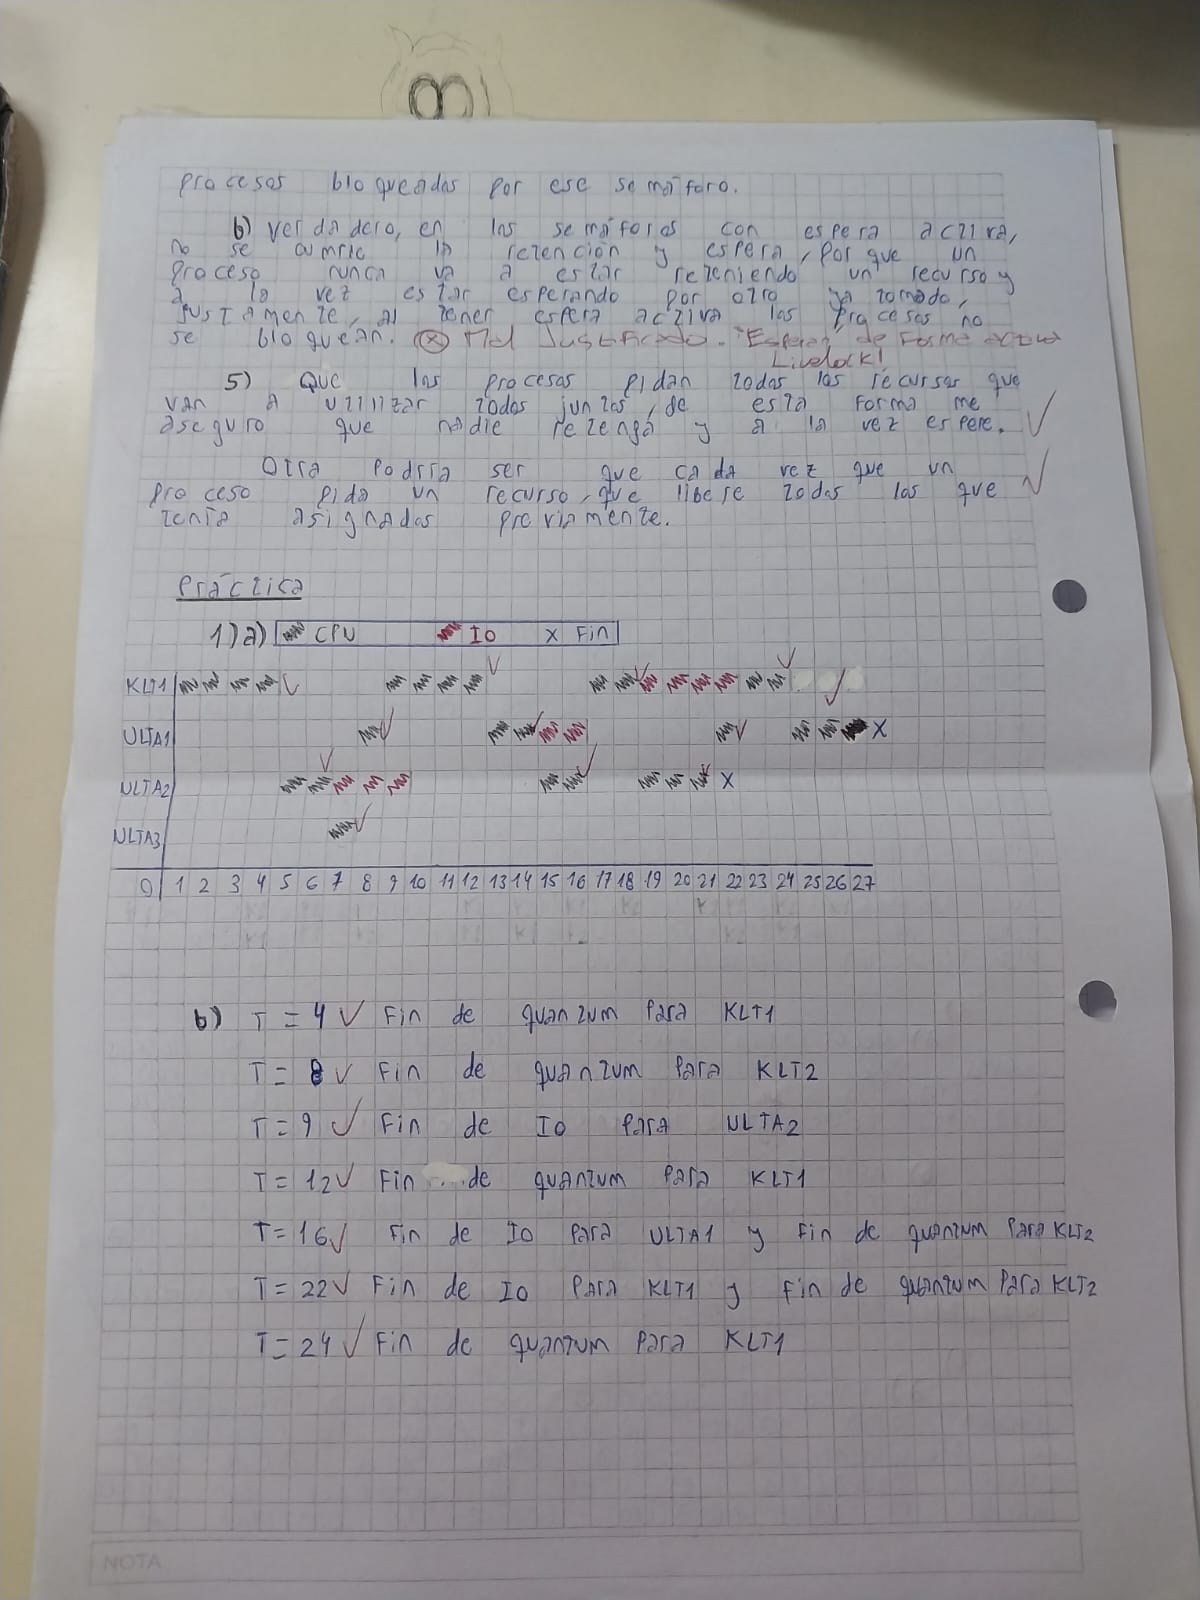 procesos bloqueados por ese semáforo.
b) Verdadero, en los semáforos con espera activa,
no se cumple la retención y espera, por que un
proceso nunca va a estar reteniendo un recurso y
a la vez estar esperando por otro ya tomado,
justamente, al tener espera activa los procesos no
se bloquean. ⓧ Mal Justificado. "Esperan" de Forma activa
Livelock!
5) Que los procesos pidan todos los recursos que
van a utilizar todos juntos, de esta forma me
aseguro que nadie retenga y a la vez espere. ✓
Otra podría ser que cada vez que un
proceso pida un recurso, que libere todos los que ✓
tenía asignados previamente.
Práctica
1) a) CPU IO X Fin
KLT1
ULTA1 X
ULTA2 X
ULTA3
0 1 2 3 4 5 6 7 8 9 10 11 12 13 14 15 16 17 18 19 20 21 22 23 24 25 26 27
b) T = 4 ✓ Fin de quantum para KLT1
T = 8 ✓ Fin de quantum para KLT2
T = 9 ✓ Fin de IO para ULTA2
T = 12 ✓ Fin de quantum para KLT1
T = 16 ✓ Fin de IO para ULTA1 y Fin de quantum para KLT2
T = 22 ✓ Fin de IO para KLT1 y Fin de quantum para KLT2
T = 24 ✓ Fin de quantum para KLT1
NOTA